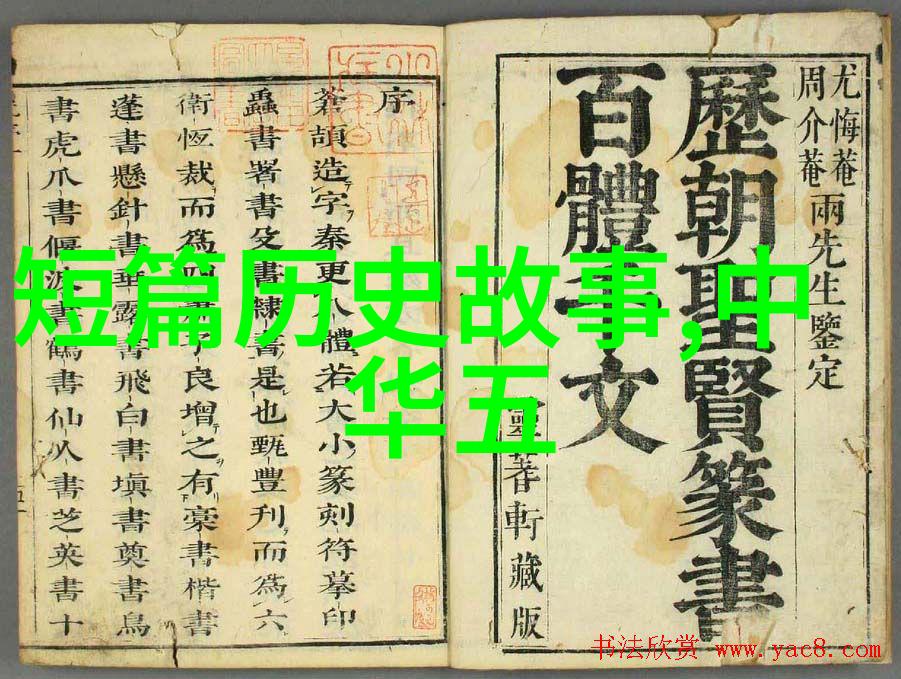 短篇历史故事,中
华五
尤悔菴
周介菴
兩先生鑒定
歷朝聖賢篆書
百體千文
軒藏版
序
蒼頡造字秦更八體若大小篆刻符摹印
蟲書署書殳書隸書是也甄豐刊而爲六
衛恆裁而爲四子良增之有藁書楷書
蓬書懸針書垂露書飛白書塡書奠書鳥
書虎爪書偃波書鶴書仙人書芝英書十
书法欣赏 www.yac8.com